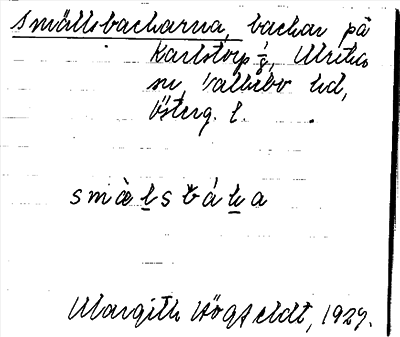 Smällsbackarna, backar på
Karlstorp 1/8, Ulrika
sn, Valkebo hd,
Österg. l.
smälsbáka
Margith Högfeldt, 1929.